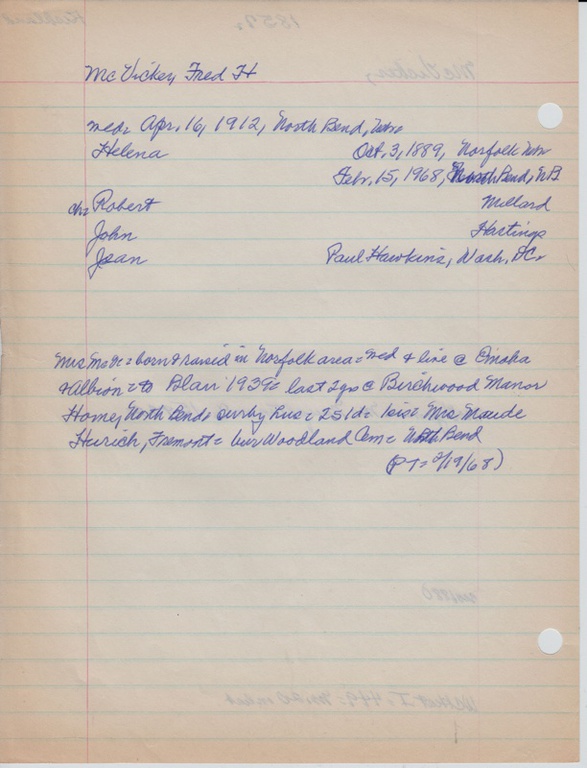 McVicker, Fred H
med: Apr. 16, 1912, North Bend,
Helena Oct. 3, 1889, Norfolk
Febr. 15, 1968, North Bend, NB
ch: Robert Millard
John Hastings
Jean Paul Hawkins, Wash, DC
Mrs Mc = born & raised in Norfolk area = & live @ Omaha
& Albion = to Blair 1939 = last 2 yrs @ Birchwood Manor
Home, North Bend = surv by hus = 2s 1d = 1 sis = Mrs Maude
Hurich, Fremont = bur Woodland Cem = North Bend
(PT = 2/19/68)